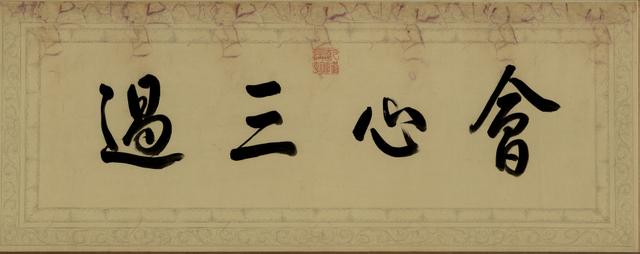 會心三過